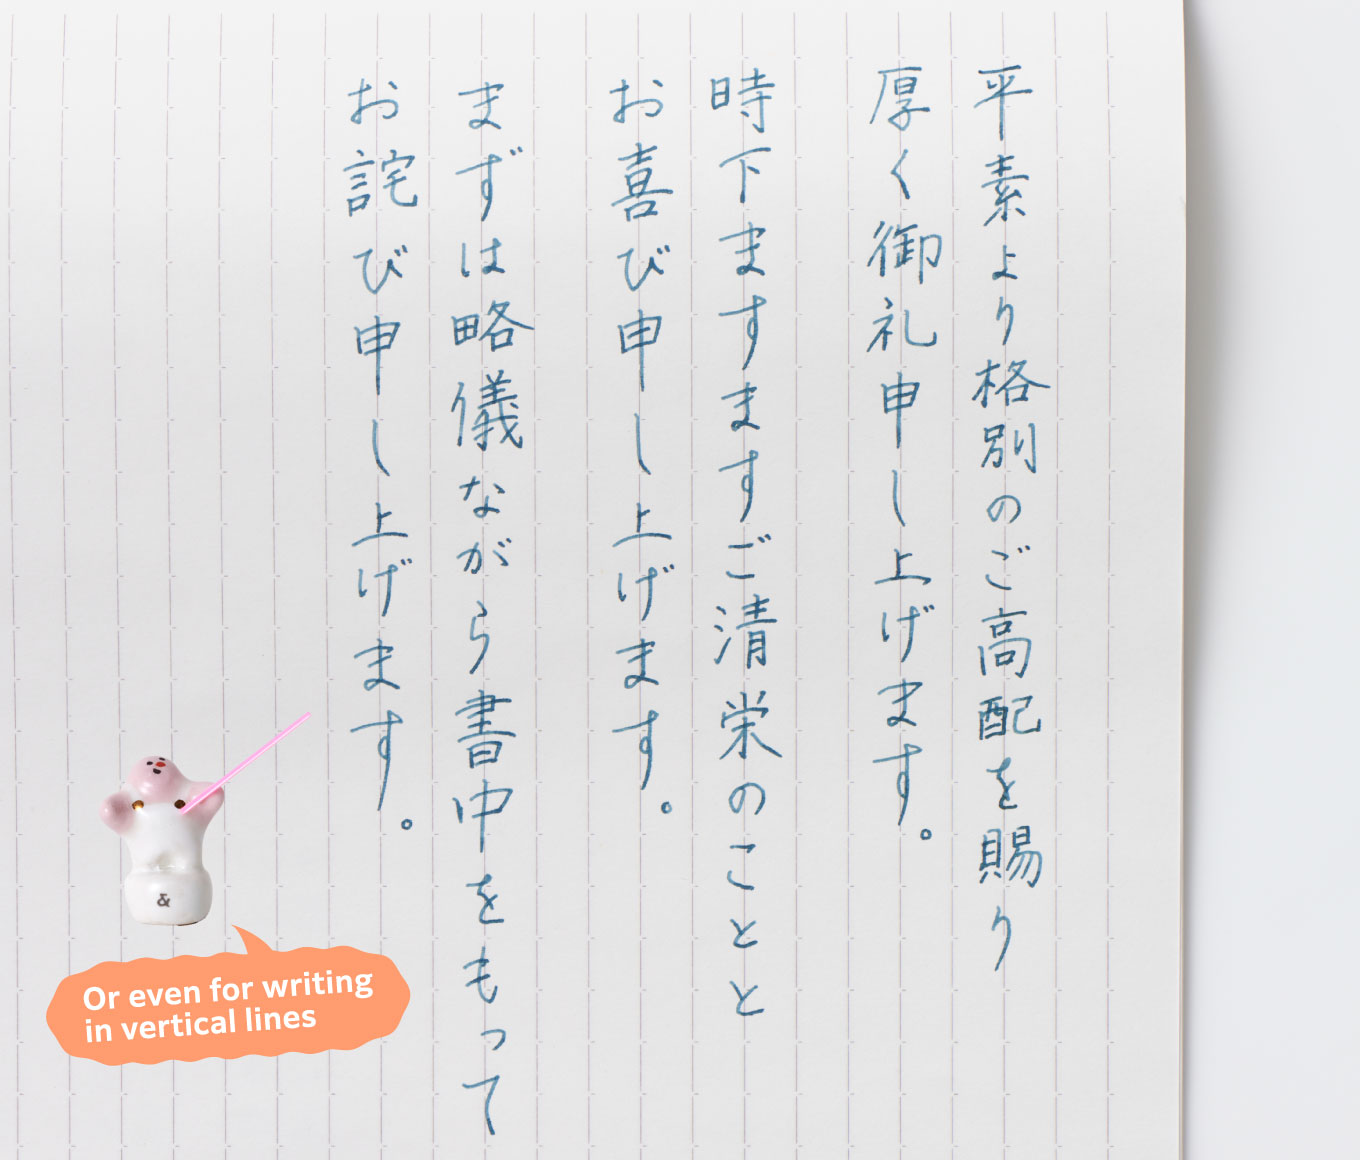 平素より格別のご高配を賜り
厚く御礼申し上げます。
時下ますますご清栄のことと
お喜び申し上げます。
まずは略儀ながら書中をもって
お詫び申し上げます。
&
Or even for writing
in vertical lines